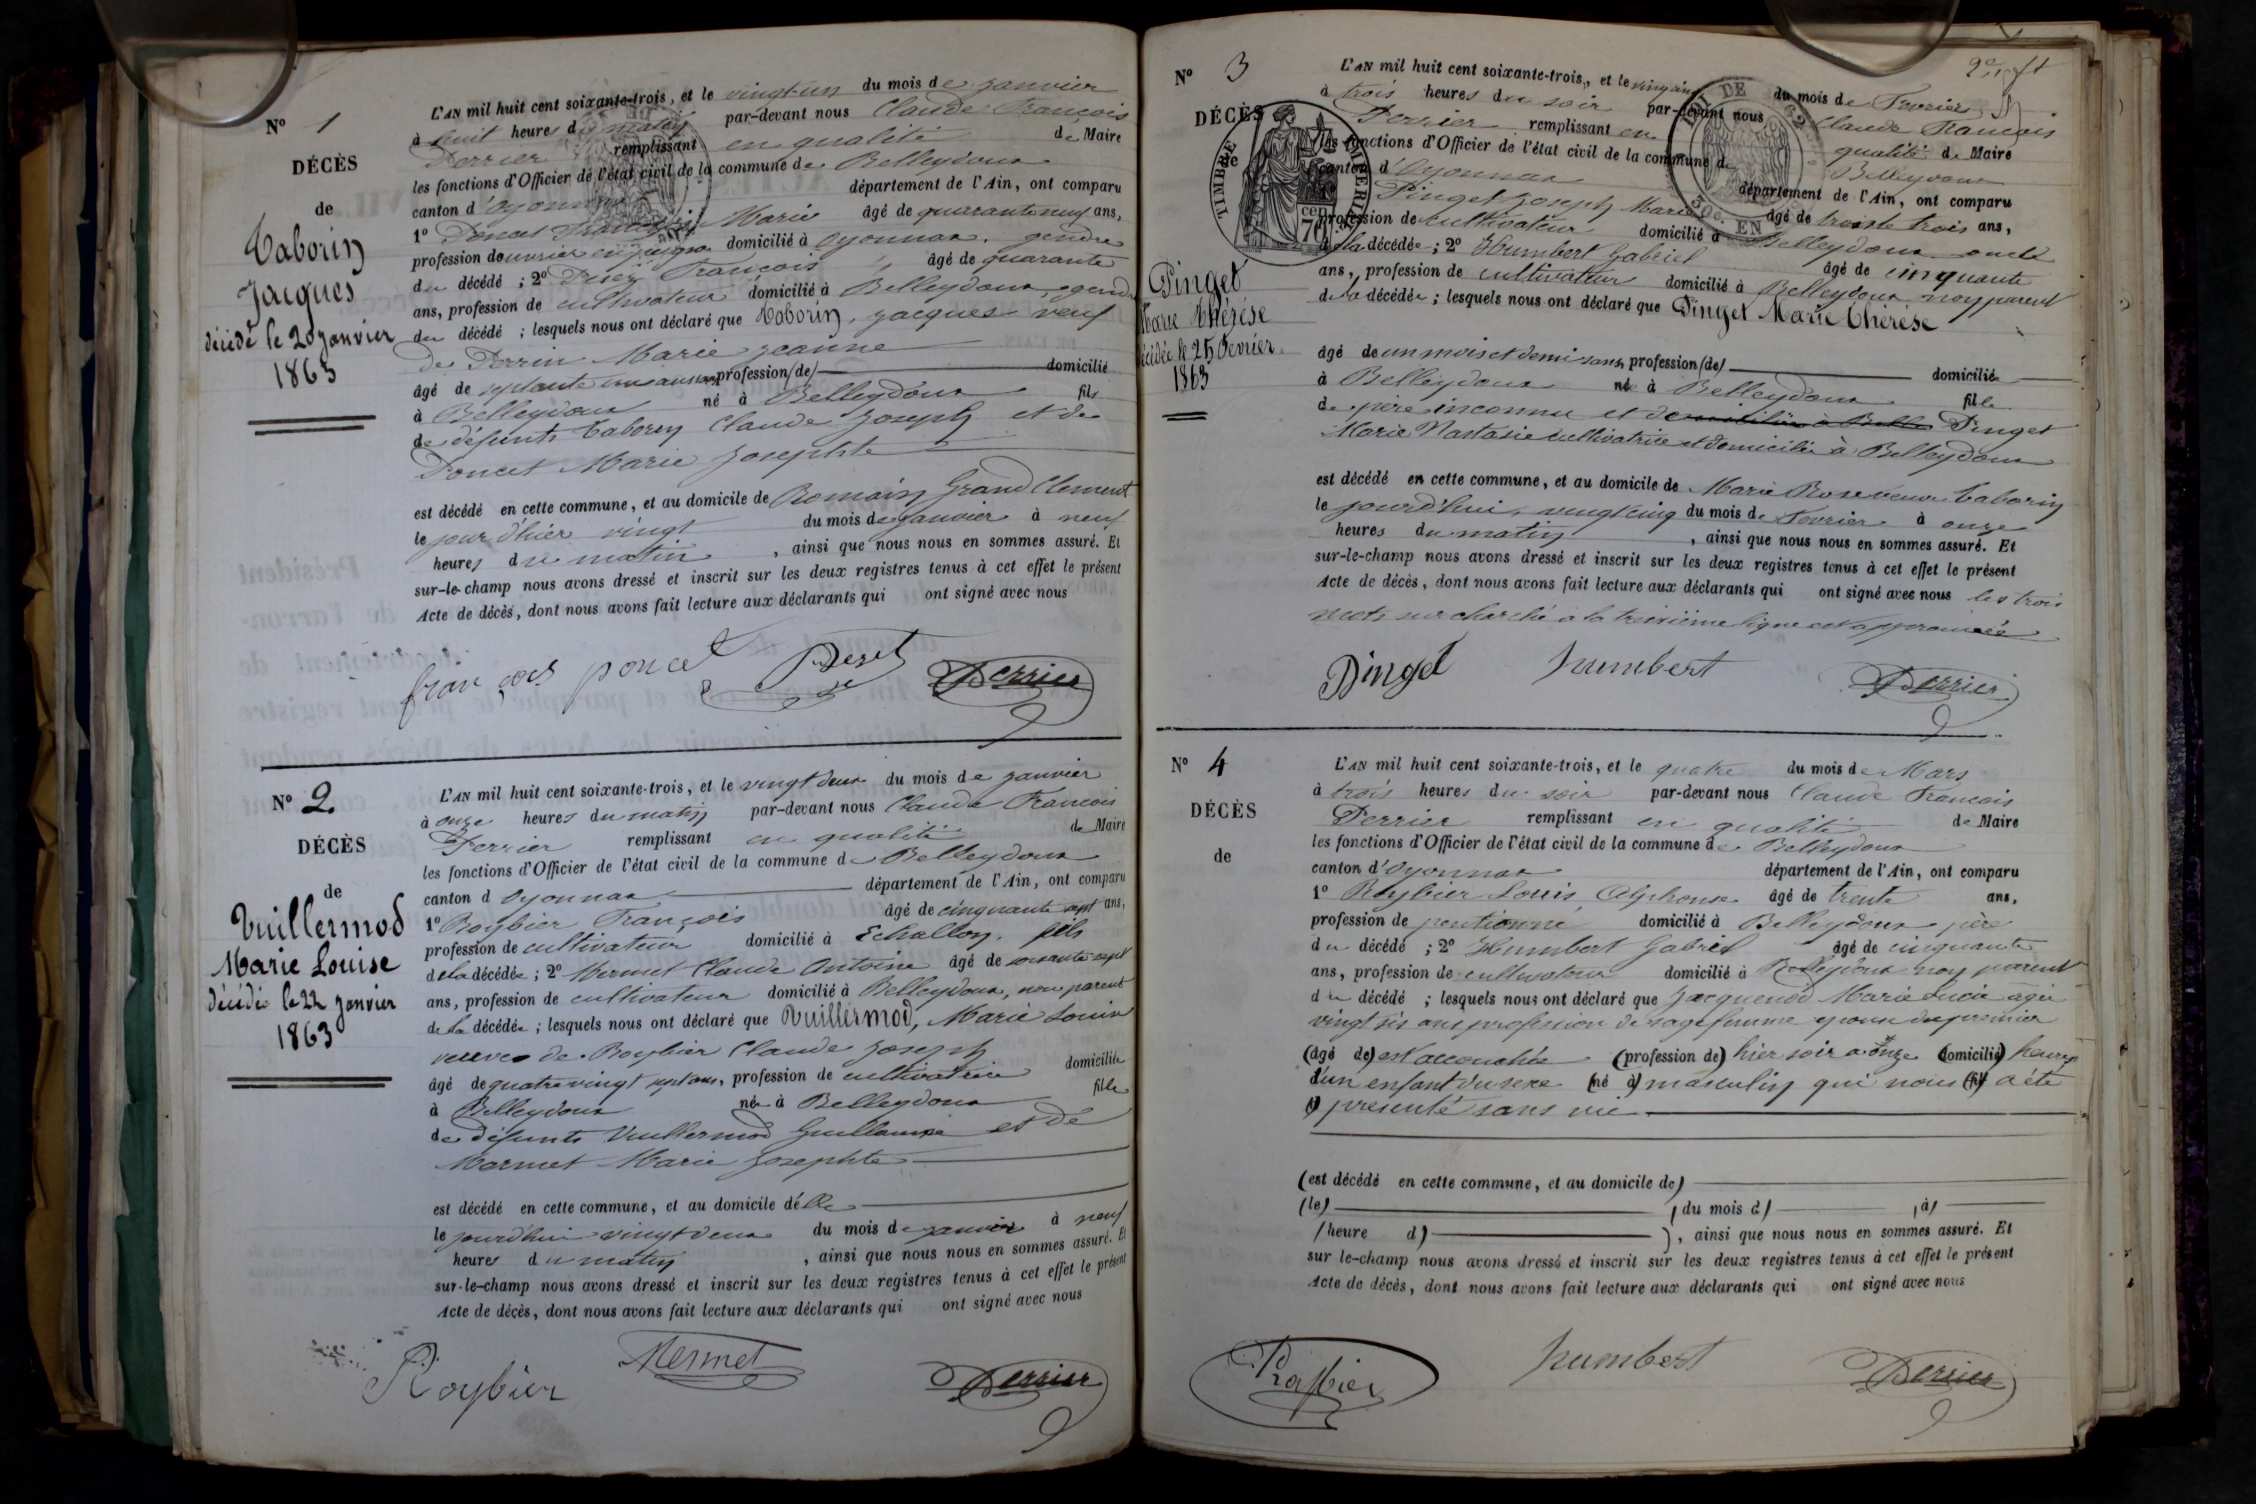 N° 1
DÉCÈS
de
Taborin
Jacques
décédé le 20 janvier
1863
L'AN mil huit cent soixante-trois, et le vingt un du mois de janvier
à huit heures du matin par-devant nous Claude François
Perrier remplissant en qualité de Maire
les fonctions d'Officier de l'état civil de la commune de Belleydoux
canton d'Oyonnax département de l'Ain, ont comparu
1° Poncet François Marie âgé de quarante neuf ans,
profession d'ouvrier en peigne domicilié à Oyonnax, gendre
du décédé ; 2° François âgé de quarante
ans, profession de cultivateur domicilié à Belleydoux, gendre
du décédé ; lesquels nous ont déclaré que Taborin, Jacques veuf
de Perrin Marie Jeanne
âgé de septante un ans sans profession (de) domicilié
à Belleydoux né à Belleydoux fils
de défunts Taborin Claude Joseph et de
Poncet Marie Josephte
est décédé en cette commune, et au domicile de Romain Grand Clement
le jour d'hier vingt du mois de janvier à neuf
heures du matin, ainsi que nous nous en sommes assuré. Et
sur-le-champ nous avons dressé et inscrit sur les deux registres tenus à cet effet le présent
Acte de décès, dont nous avons fait lecture aux déclarants qui ont signé avec nous
françois poncet Perrier
N° 2
DÉCÈS
de
Vuillermod
Marie Louise
décédée le 22 janvier
1863
L'AN mil huit cent soixante-trois, et le vingt deux du mois de janvier
à onze heures du matin par-devant nous Claude François
Perrier remplissant en qualité de Maire
les fonctions d'Officier de l'état civil de la commune de Belleydoux
canton d Oyonnax département de l'Ain, ont comparu
1° Roybier François âgé de cinquante sept ans,
profession de cultivateur domicilié à Echallon, fils
de la décédée ; 2° Mermet Claude Antoine âgé de soixante sept
ans, profession de cultivateur domicilié à Belleydoux, non parent
de la décédée ; lesquels nous ont déclaré que Vuillermod, Marie Louise
veuve de Roybier Claude Joseph
âgé de quatre vingt sept ans, profession de cultivatrice domiciliée
à Belleydoux née à Belleydoux fille
de défunts Vuillermod Guillaume et de
Mermet Marie Josephte
est décédé en cette commune, et au domicile d'elle
le jourd'hui vingt deux du mois de janvier à neuf
heures du matin, ainsi que nous nous en sommes assuré. Et
sur-le-champ nous avons dressé et inscrit sur les deux registres tenus à cet effet le présent
Acte de décès, dont nous avons fait lecture aux déclarants qui ont signé avec nous
Roybier Mermet Perrier
2e
N° 3
DÉCÈS
TIMBRE IMPÉRIAL
70 cen
Pinget
Marie Thérèse
décédée le 25 fevrier
1863
L'AN mil huit cent soixante-trois, et le vingt cinq du mois de Fevrier
à trois heures du soir par-devant nous Claude François
Perrier remplissant en qualité de Maire
les fonctions d'Officier de l'état civil de la commune de Belleydoux
canton d'Oyonnax département de l'Ain, ont comparu
Pinget Joseph Marie âgé de trente trois ans,
profession de cultivateur domicilié à Belleydoux oncle
de la décédée ; 2° Humbert Gabriel âgé de cinquante
ans, profession de cultivateur domicilié à Belleydoux non parent
de la décédée ; lesquels nous ont déclaré que Pinget Marie Thérèse
âgé de un mois et demi sans profession (de) domiciliée
à Belleydoux né à Belleydoux fille
de père inconnu et domiciliée à Bell Pinget
Marie Nastasie cultivatrice et domiciliée à Belleydoux
est décédé en cette commune, et au domicile de Marie Rose veuve Taborin
le jourd'hui, vingt cinq du mois de Fevrier à onze
heures du matin, ainsi que nous nous en sommes assuré. Et
sur-le-champ nous avons dressé et inscrit sur les deux registres tenus à cet effet le présent
Acte de décès, dont nous avons fait lecture aux déclarants qui ont signé avec nous les trois
mots surchargé à la treizième ligne est approuvée
Pinget humbert Perrier
N° 4
DÉCÈS
de
L'AN mil huit cent soixante-trois, et le quatre du mois de Mars
à trois heures du soir par-devant nous Claude François
Perrier remplissant en qualité de Maire
les fonctions d'Officier de l'état civil de la commune de Belleydoux
canton d'Oyonnax département de l'Ain, ont comparu
1° Roybier Louis Alphonse âgé de trente ans,
profession de pentionné domicilié à Belleydoux père
du décédé ; 2° Humbert Gabriel âgé de cinquante
ans, profession de cultivateur domicilié à Belleydoux non parent
du décédé ; lesquels nous ont déclaré que Jacquenod Marie Lucie agée
vingt six ans profession de sage femme epouse du premier
(âgé de) est accouchée (profession de) hier soir a onze (domicilié) heures
d'un enfant du sexe (né à) masculin qui nous (fil) a été
presenté sans vie
(est décédé en cette commune, et au domicile de)
(le) (du mois d) (à)
(heure d), ainsi que nous nous en sommes assuré. Et
sur le-champ nous avons dressé et inscrit sur les deux registres tenus à cet effet le présent
Acte de décès, dont nous avons fait lecture aux déclarants qui ont signé avec nous
humbert Perrier